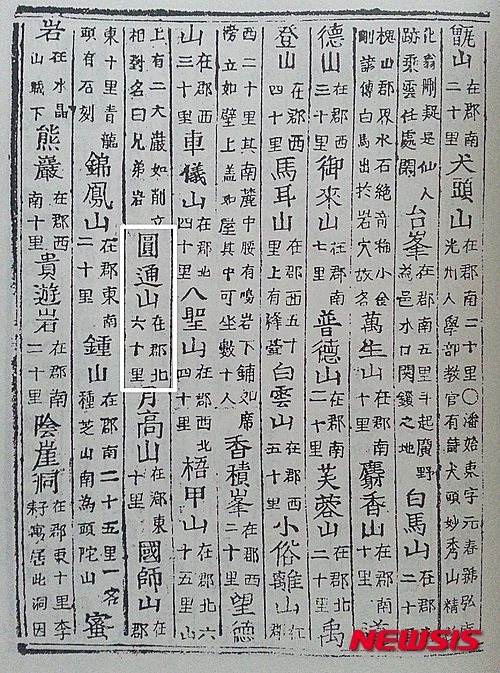 山在郡南二十里犬頭山在郡南二十里〇潘始東字元春號弘光州人學部教官有詩犬頭妙秀山精
化翁剛疑是仙人跡乘雲任處閑台峯在郡南五里斗起廣野為邑水口関鍰之地白馬山在郡二十
槐山郡界水石絶奇稱小金剛諺傳白馬出於岩穴故名萬生山在郡南十里麝香山在郡南十里
德山在郡南三十里御來山在郡南七里普德山在郡南二十里芙蓉山在郡南二十里禹
登山在郡西四十里馬耳山在郡西五十里上有烽臺白雲山在郡西五十里小俗離山在郡西
西二十里其南麓中腰有鳴岩下鋪如席傍立如壁上盖如屋其中可坐數十人香積峯在郡西二十里望德
山在郡西三十里車儀山在郡北四十里八聖山在郡西北四十里梧甲山在郡北六十五里
上有二大巖如削立相對名曰兄弟岩圓通山在郡北六十里月高山在郡東十里國師山在郡
東十里青龍頭有石刻錦鳳山在郡東南二十里鍾山在郡南二十五里一名種芝山南為頭陀山蜜
岩在水晶山城下熊巖在郡西南十里貴遊岩在郡南二十里陰崖洞在郡東十里李耔寓居此洞因
NEWSIS